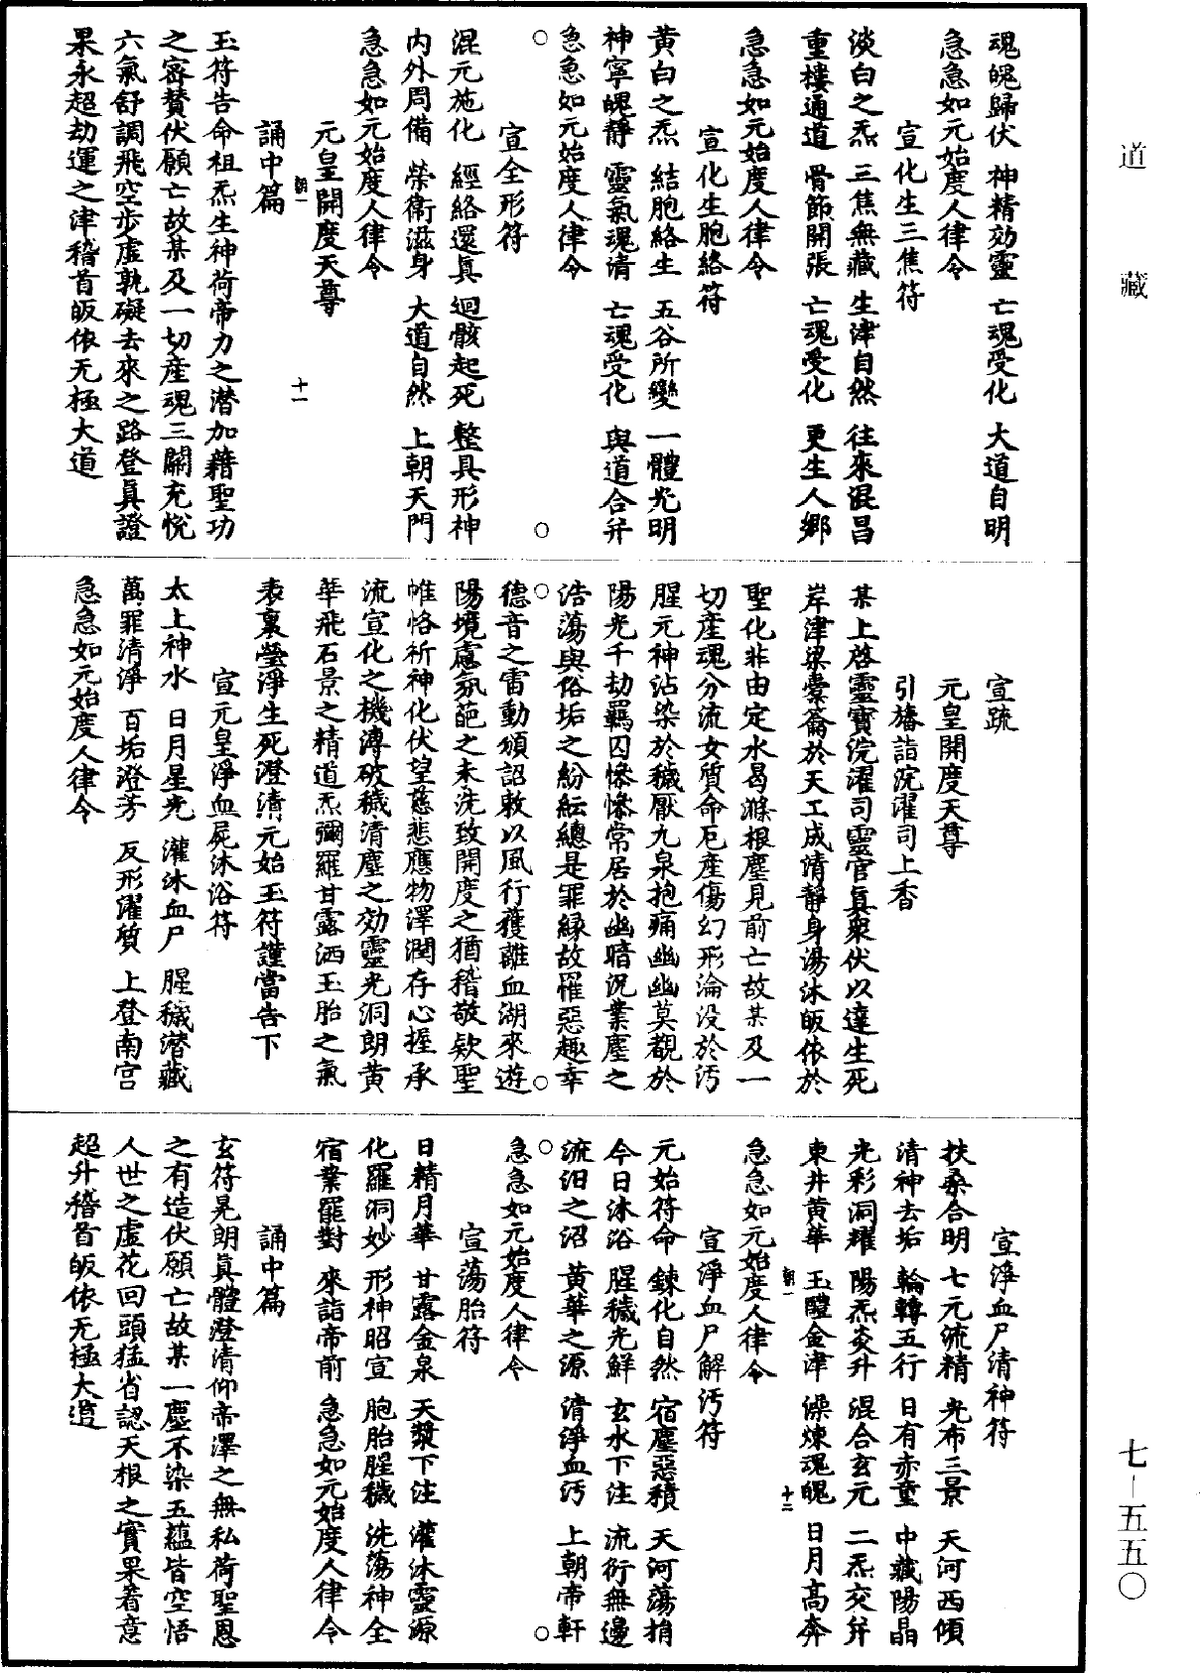 道藏
七—五五〇
魂魄歸伏　神精効靈　亡魂受化　大道自明
急急如元始度人律令
宣化生三焦符
淡白之炁　三焦無藏　生津自然　往來混昌
重樓通道　骨節開張　亡魂受化　更生人鄉
急急如元始度人律令
宣化生胞絡符
黄白之炁　結胞絡生　五谷所變　一體光明
神寧魄靜　靈氣魂清　亡魂受化　與道合并
急急如元始度人律令
○　○
宣全形符
混元施化　經絡還眞　迴骸起死　整具形神
内外周備　榮衛滋身　大道自然　上朝天門
急急如元始度人律令
元皇開度天尊
朝一　十一
誦中篇
玉符告命祖炁生神荷帝力之潜加藉聖功
之密賛伏願亡故某及一切産魂三關充恱
六氣舒調飛空步虚孰礙去來之路登眞證
果永超劫運之津稽首皈依无極大道
宣疏
元皇開度天尊
引旛詣浣濯司上香
某上啓靈寶浣濯司靈官眞衆伏以達生死
岸津梁橐籥於天工成清靜身湯沐皈依於
聖化非由定水曷滌根塵見前亡故某及一
切産魂分流女質命厄産傷幻形淪没於汚
腥元神沾染於穢厭九泉抱痛幽幽莫覩於
陽光千劫羈囚慘慘常居於幽暗況業塵之
浩蕩與俗垢之紛紜總是罪緣故罹惡趣幸
○　○
德音之雷動頒詔敕以風行獲離血湖來遊
陽境慮氛葩之未洗致開度之猶稽敬欵聖
帷恪祈神化伏望慈悲應物澤潤存心握承
流宣化之機溥破穢清塵之効靈光洞朗黄
華飛石景之精道炁彌羅甘露洒玉胎之氣
表裏瑩淨生死澄清元始玉符謹當告下
宣元皇淨血屍沐浴符
太上神水　日月星光　灌沐血尸　腥穢潜藏
萬罪清淨　百垢澄芳　反形濯質　上登南宮
急急如元始度人律令
宣淨血尸清神符
扶桑合明　七元流精　光布三景　天河西傾
清神去垢　輪轉五行　日有赤童　中藏陽晶
光彩洞耀　陽炁炎升　混合玄元　二炁交并
東井黄華　玉醴金津　澡煉魂魄　日月高奔
朝一　十二
急急如元始度人律令
宣淨血尸解汚符
元始符命　鍊化自然　宿塵惡積　天河蕩捐
今日沐浴　腥穢光鮮　玄水下注　流衍無邊
流汨之沼　黄華之源　清淨血汚　上朝帝軒
○　○
急急如元始度人律令
宣蕩胎符
日精月華　甘露金泉　天漿下注　灌沐靈源
化羅洞妙　形神昭宣　胞胎腥穢　洗蕩神全
宿業罷對　來詣帝前　急急如元始度人律令
誦中篇
玄符晃朗眞體澄清仰帝澤之無私荷聖恩
之有造伏願亡故某一塵不染五蘊皆空悟
人世之虚花回頭猛省認天根之實果著意
超升稽首皈依无極大道